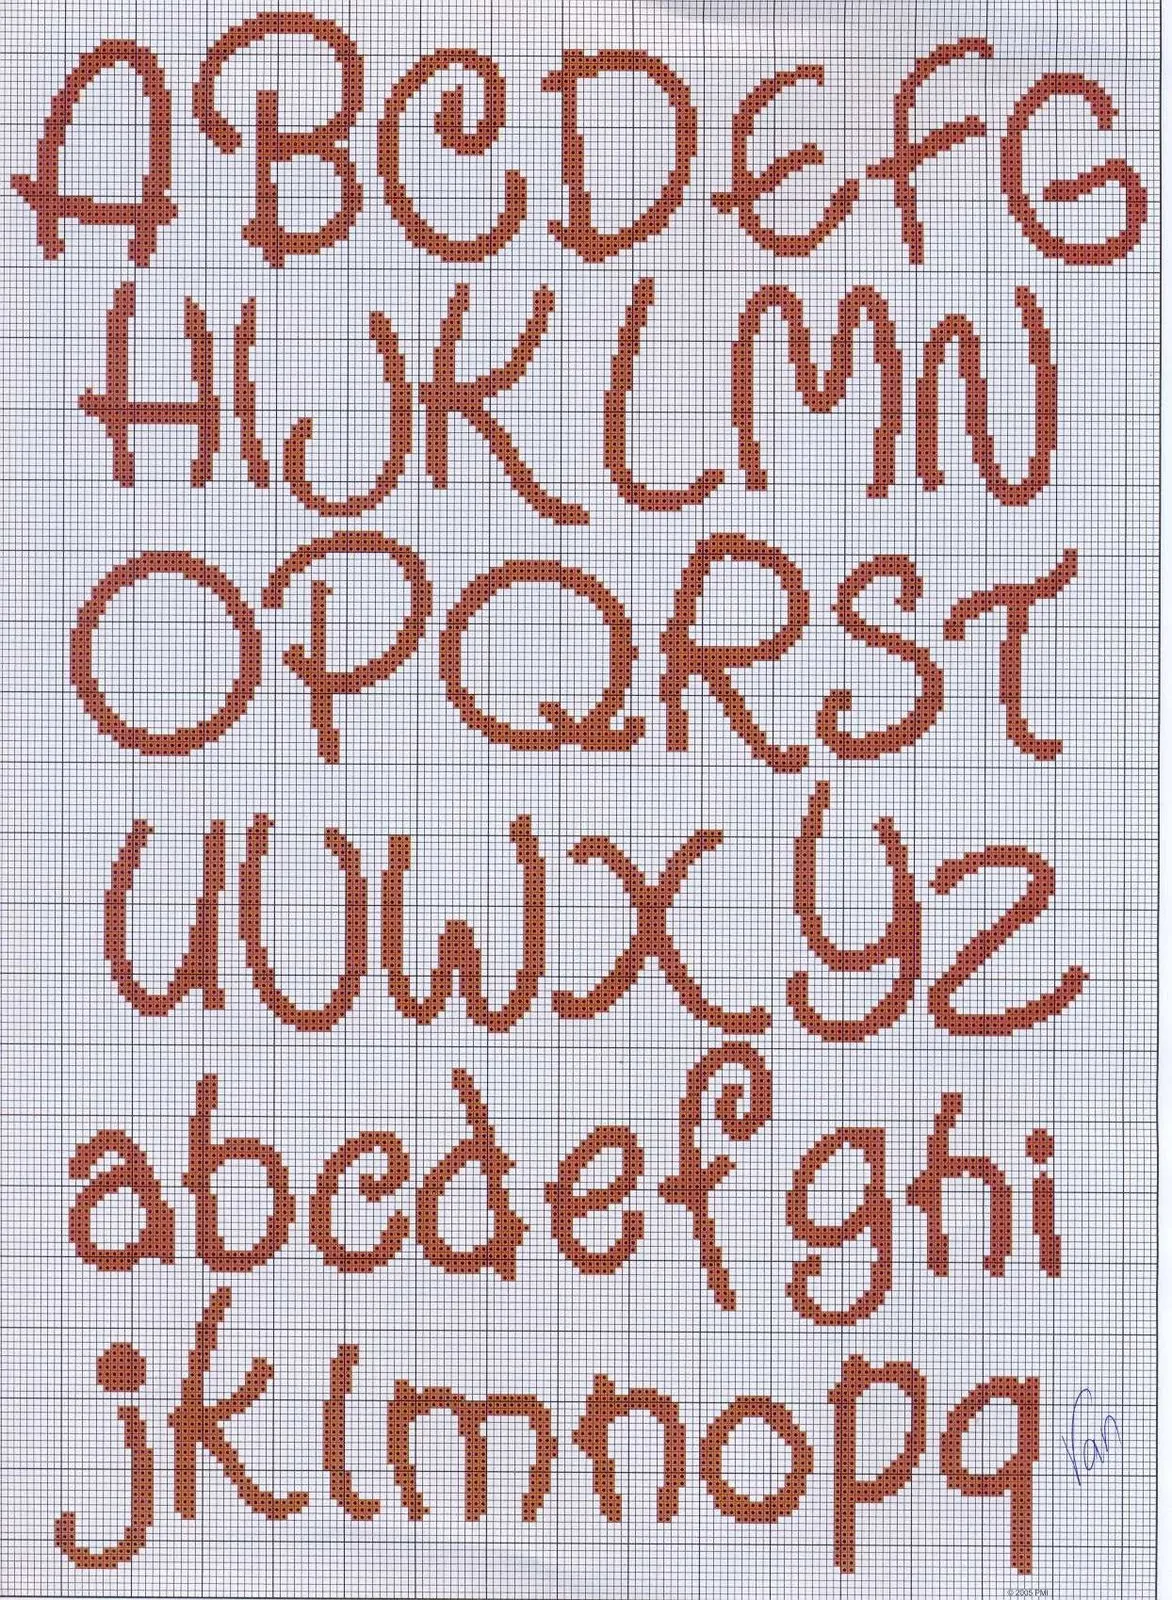 A B C D E F G
H I J K L M N
O P Q R S T
U V W X Y Z
a b c d e f g h i
j k l m n o p q
Van
© 2005 PMI